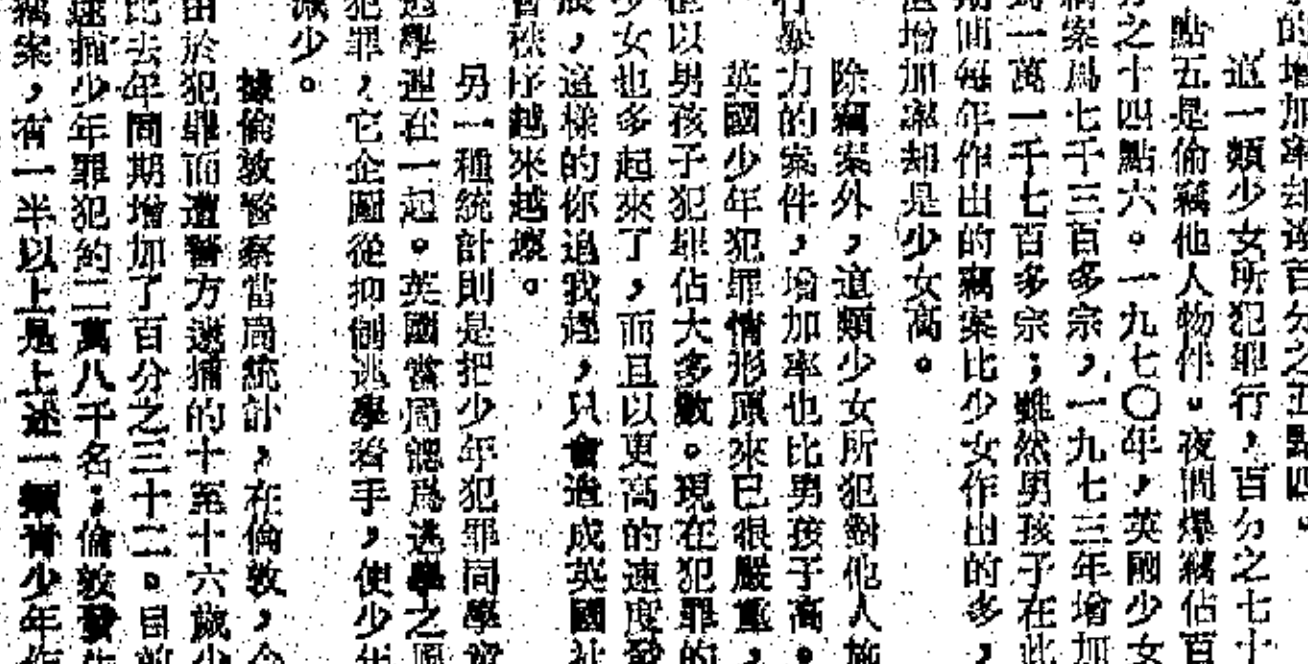 的增加率却達百分之五點四。
這一類少女所犯罪行，百分之七十
點五是偷竊他人物件。夜間爆竊佔百
分之十四點六。一九七〇年，英國少女
竊案爲七千三百多宗，一九七三年增加
到一萬一千七百多宗；雖然男孩子在此
期間每年作出的竊案比少女作出的多，
但增加率却是少女高。
除竊案外，這類少女所犯對他人施
行暴力的案件，增加率也比男孩子高。
英國少年犯罪情形原來已很嚴重，
但以男孩子犯罪佔大多數。現在犯罪的
少女也多起來了，而且以更高的速度發
展，這樣的你追我趕，只會造成英國社
會秩序越來越壞。
另一種統計則是把少年犯罪同學童
逃學連在一起。英國當局認爲逃學之風
犯罪，它企圖從抑制逃學着手，使少年
減少。
據倫敦警察當局統計，在倫敦，今
由於犯罪而遭警方逮捕的十至十六歲少
比去年同期增加了百分之三十二。目前
逮捕少年罪犯約二萬八千名；倫敦發生
竊案，有一半以上是上述一類青少年作